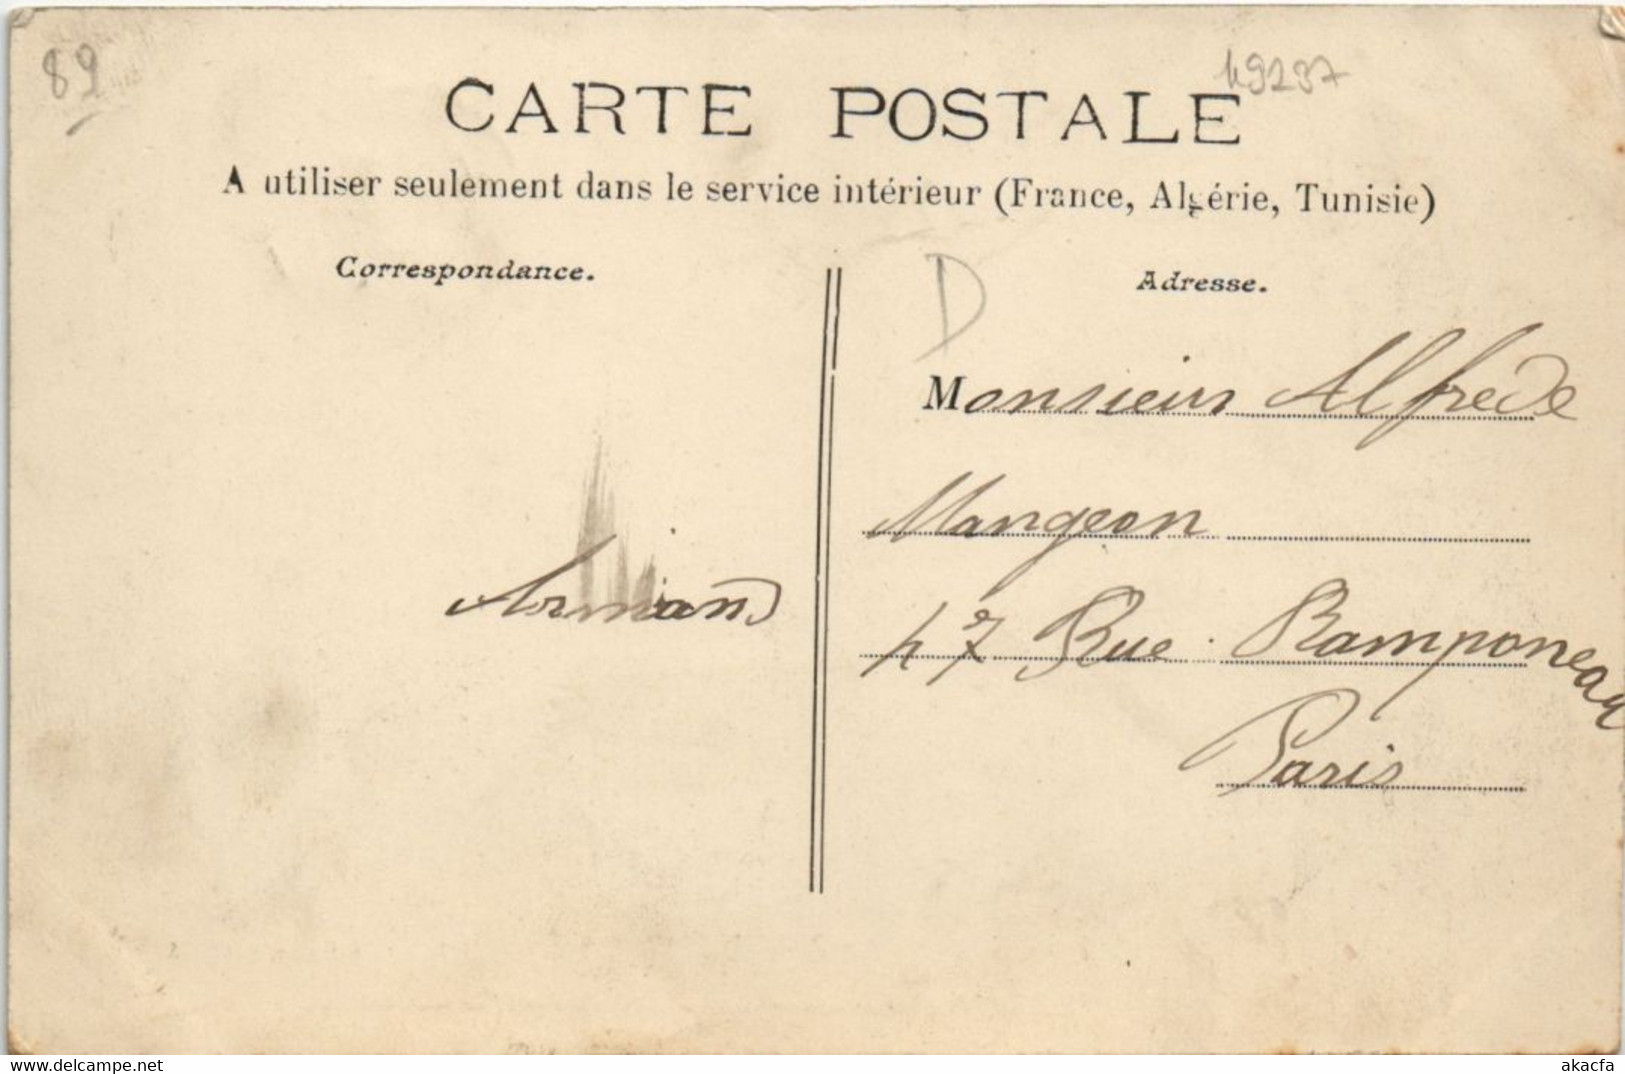 89
49237
CARTE POSTALE
A utiliser seulement dans le service intérieur (France, Algérie, Tunisie)
Correspondance.
Armand
D
Adresse.
Monsieur Alfrede
Mangeon
47 Rue Ramponeau
Paris
Delcampe.net
akacfa